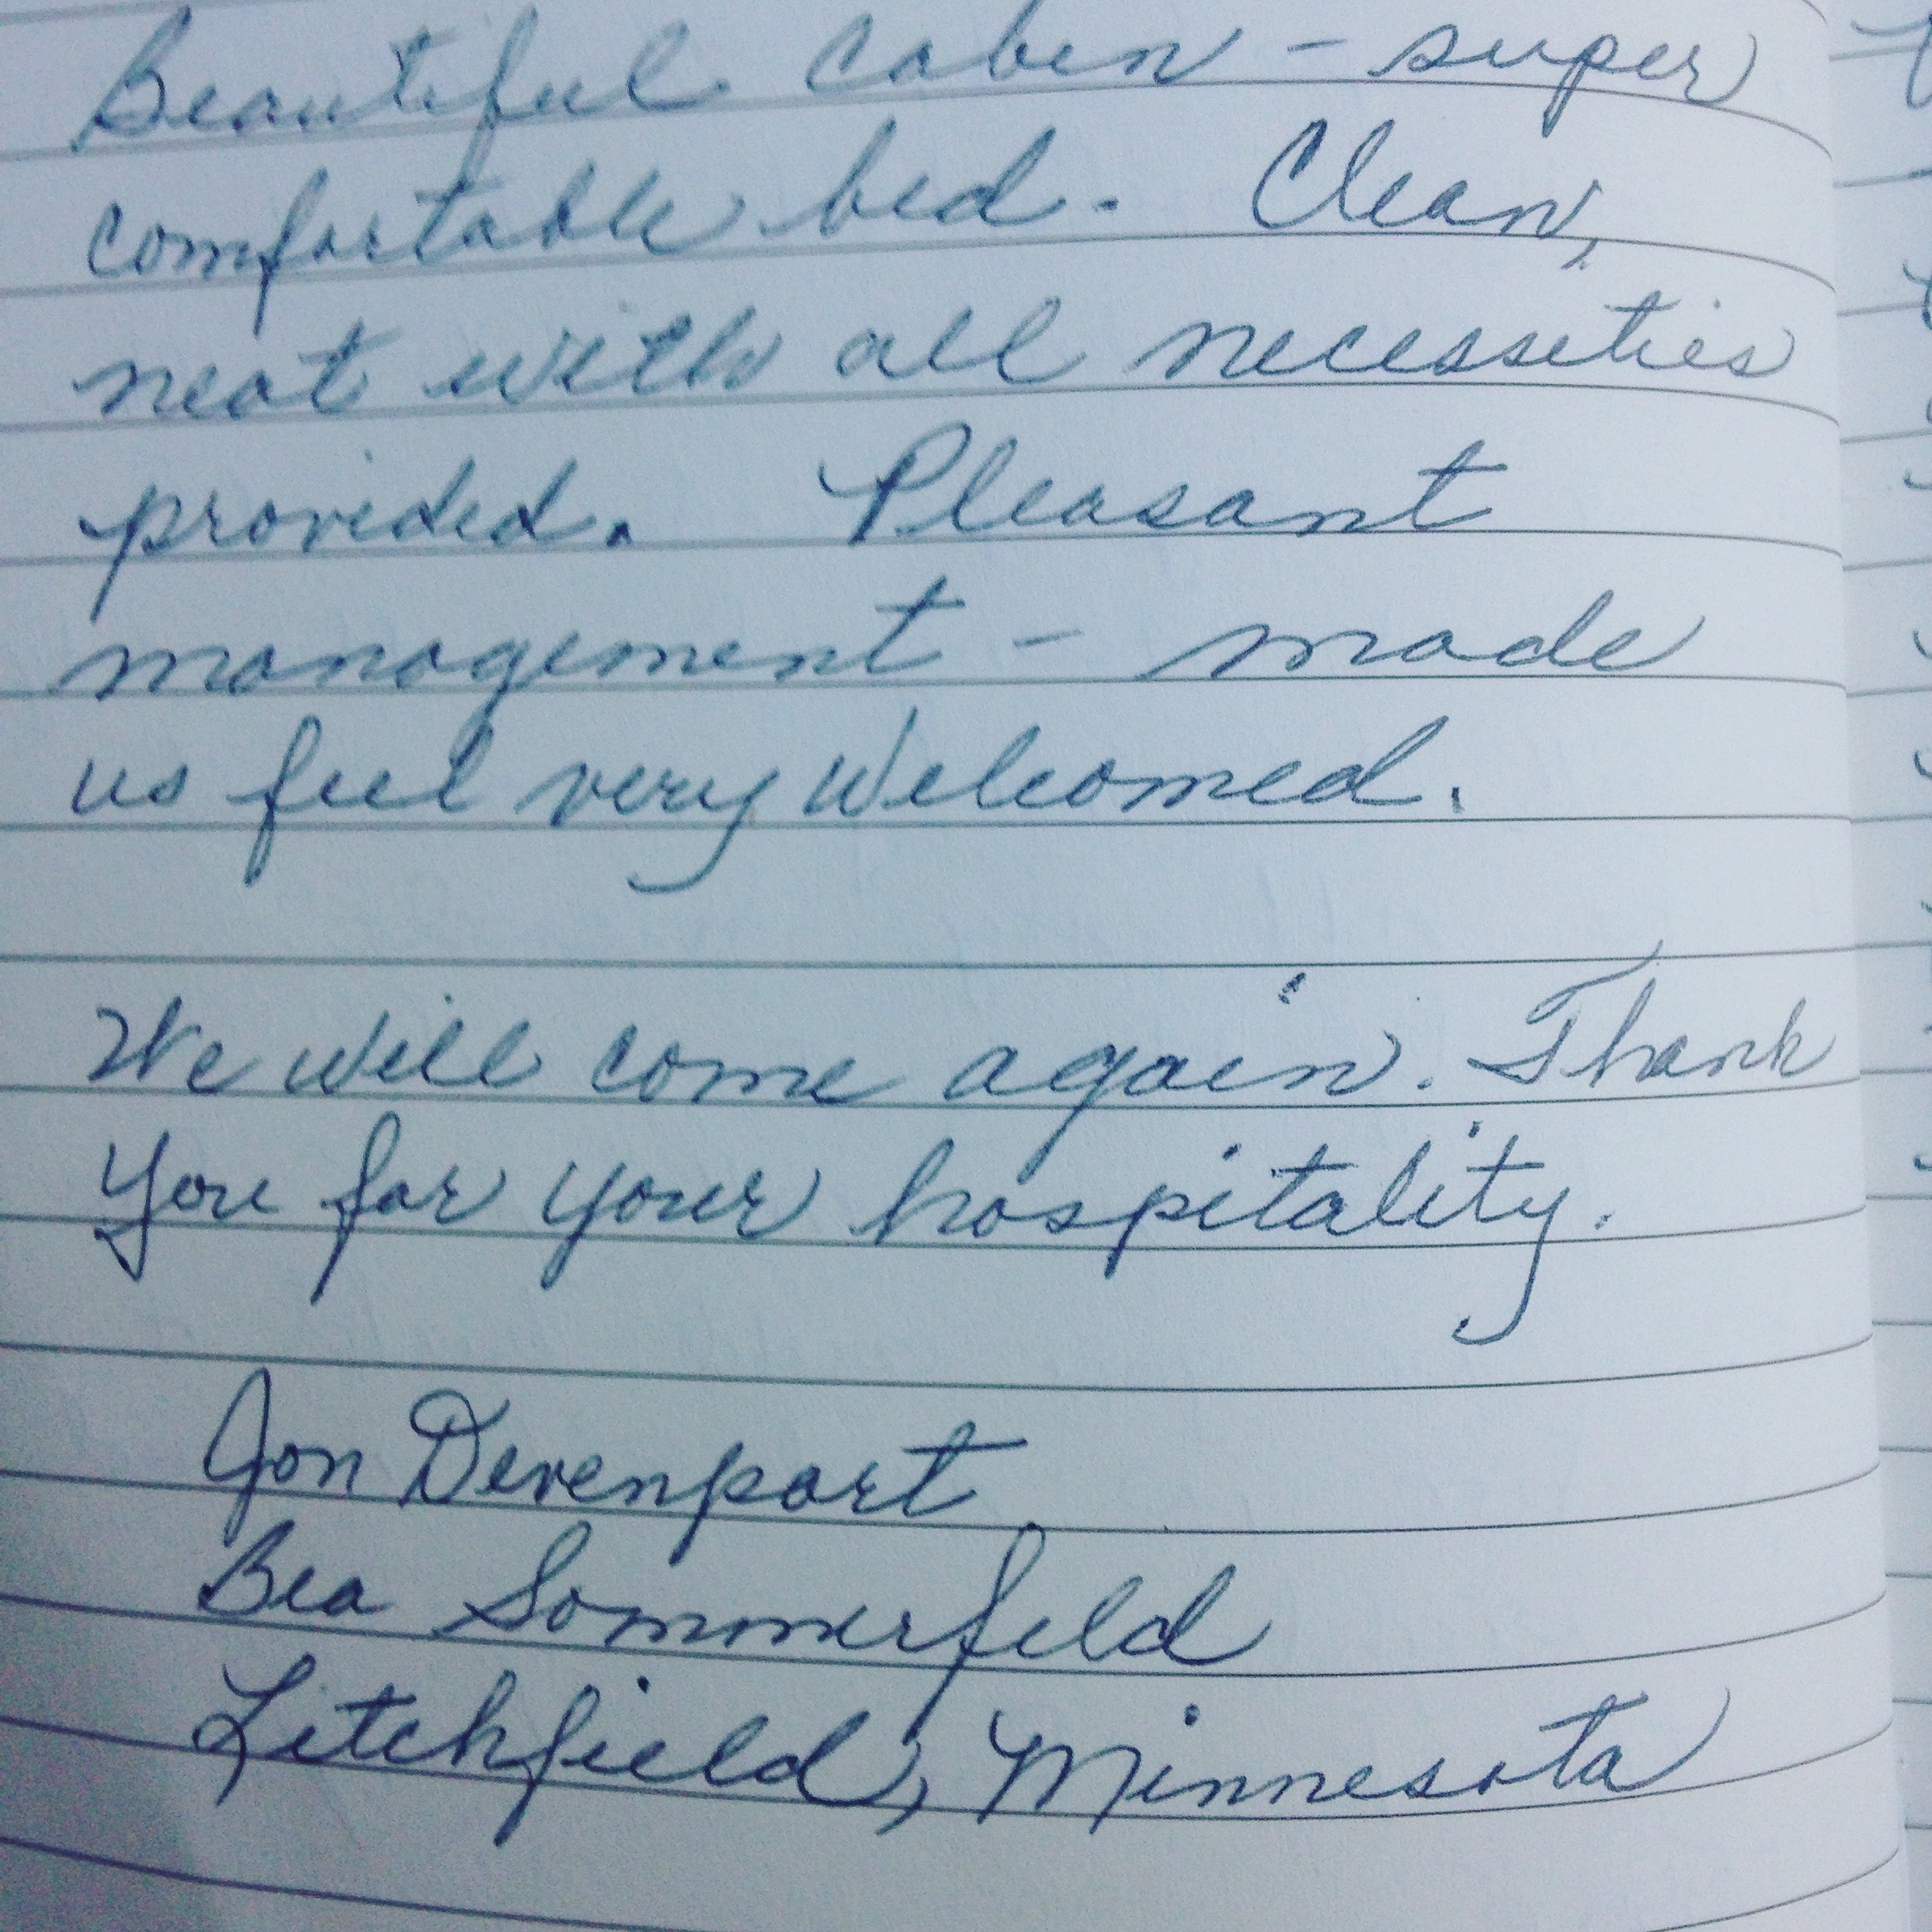 Beautiful cabin - super
comfortable bed. Clean,
neat with all necessities
provided. Pleasant
management - made
us feel very welcomed.
We will come again. Thank
you for your hospitality.
Jon Devenport
Bea Sommerfeld
Litchfield, Minnesota